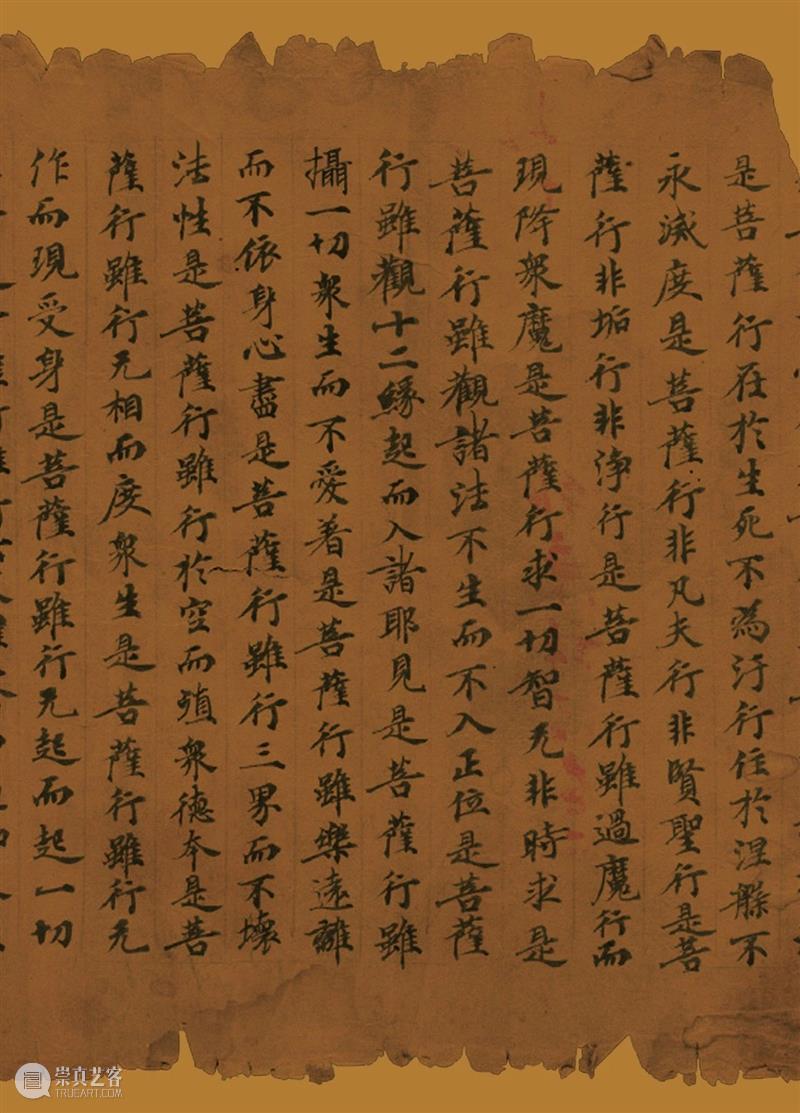 是菩薩行在於生死不為汙行住於涅槃不
永滅度是菩薩行非凡夫行非賢聖行是菩
薩行非垢行非淨行是菩薩行雖過魔行而
現降衆魔是菩薩行求一切智无非時求是
菩薩行雖觀諸法不生而不入正位是菩薩
行雖觀十二緣起而入諸耶見是菩薩行雖
攝一切衆生而不愛著是菩薩行雖樂遠離
而不依身心盡是菩薩行雖行三界而不壞
法性是菩薩行雖行於空而殖衆德本是菩
薩行雖行无相而度衆生是菩薩行雖行无
作而現受身是菩薩行雖行无起而起一切
崇真艺客
TRUEART.COM